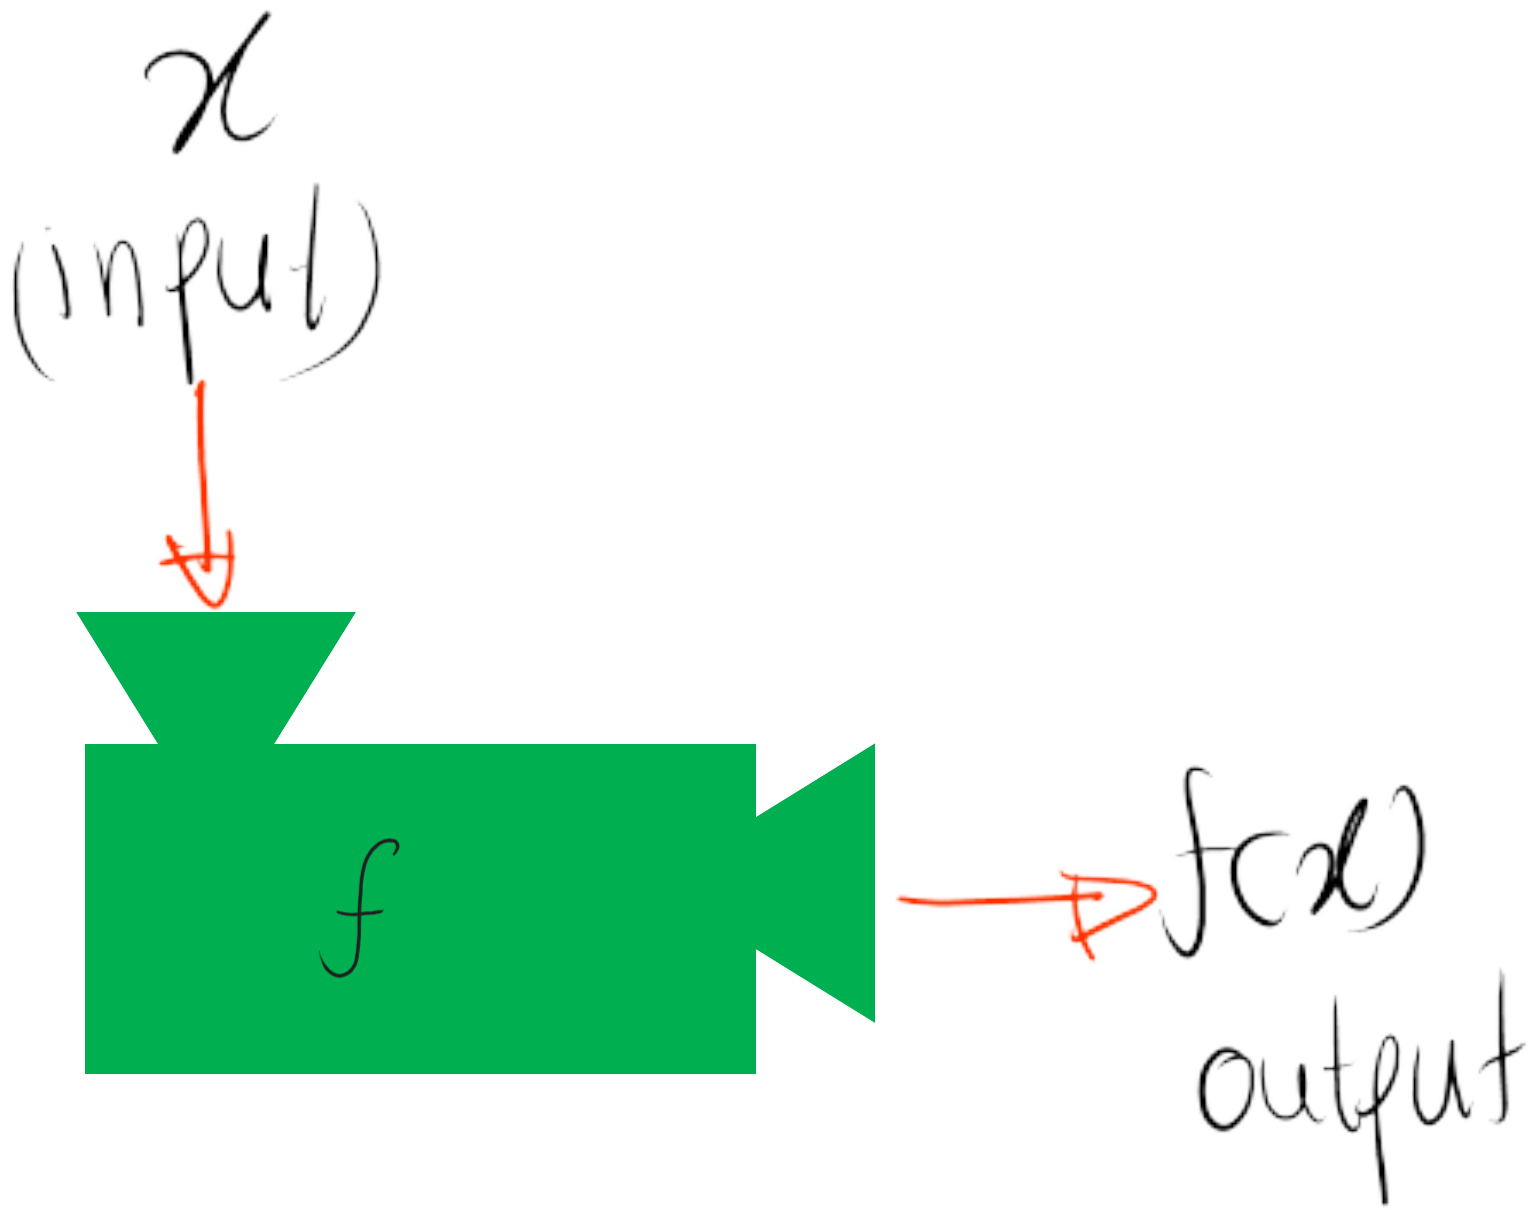 x
(input)
f
f(x)
output